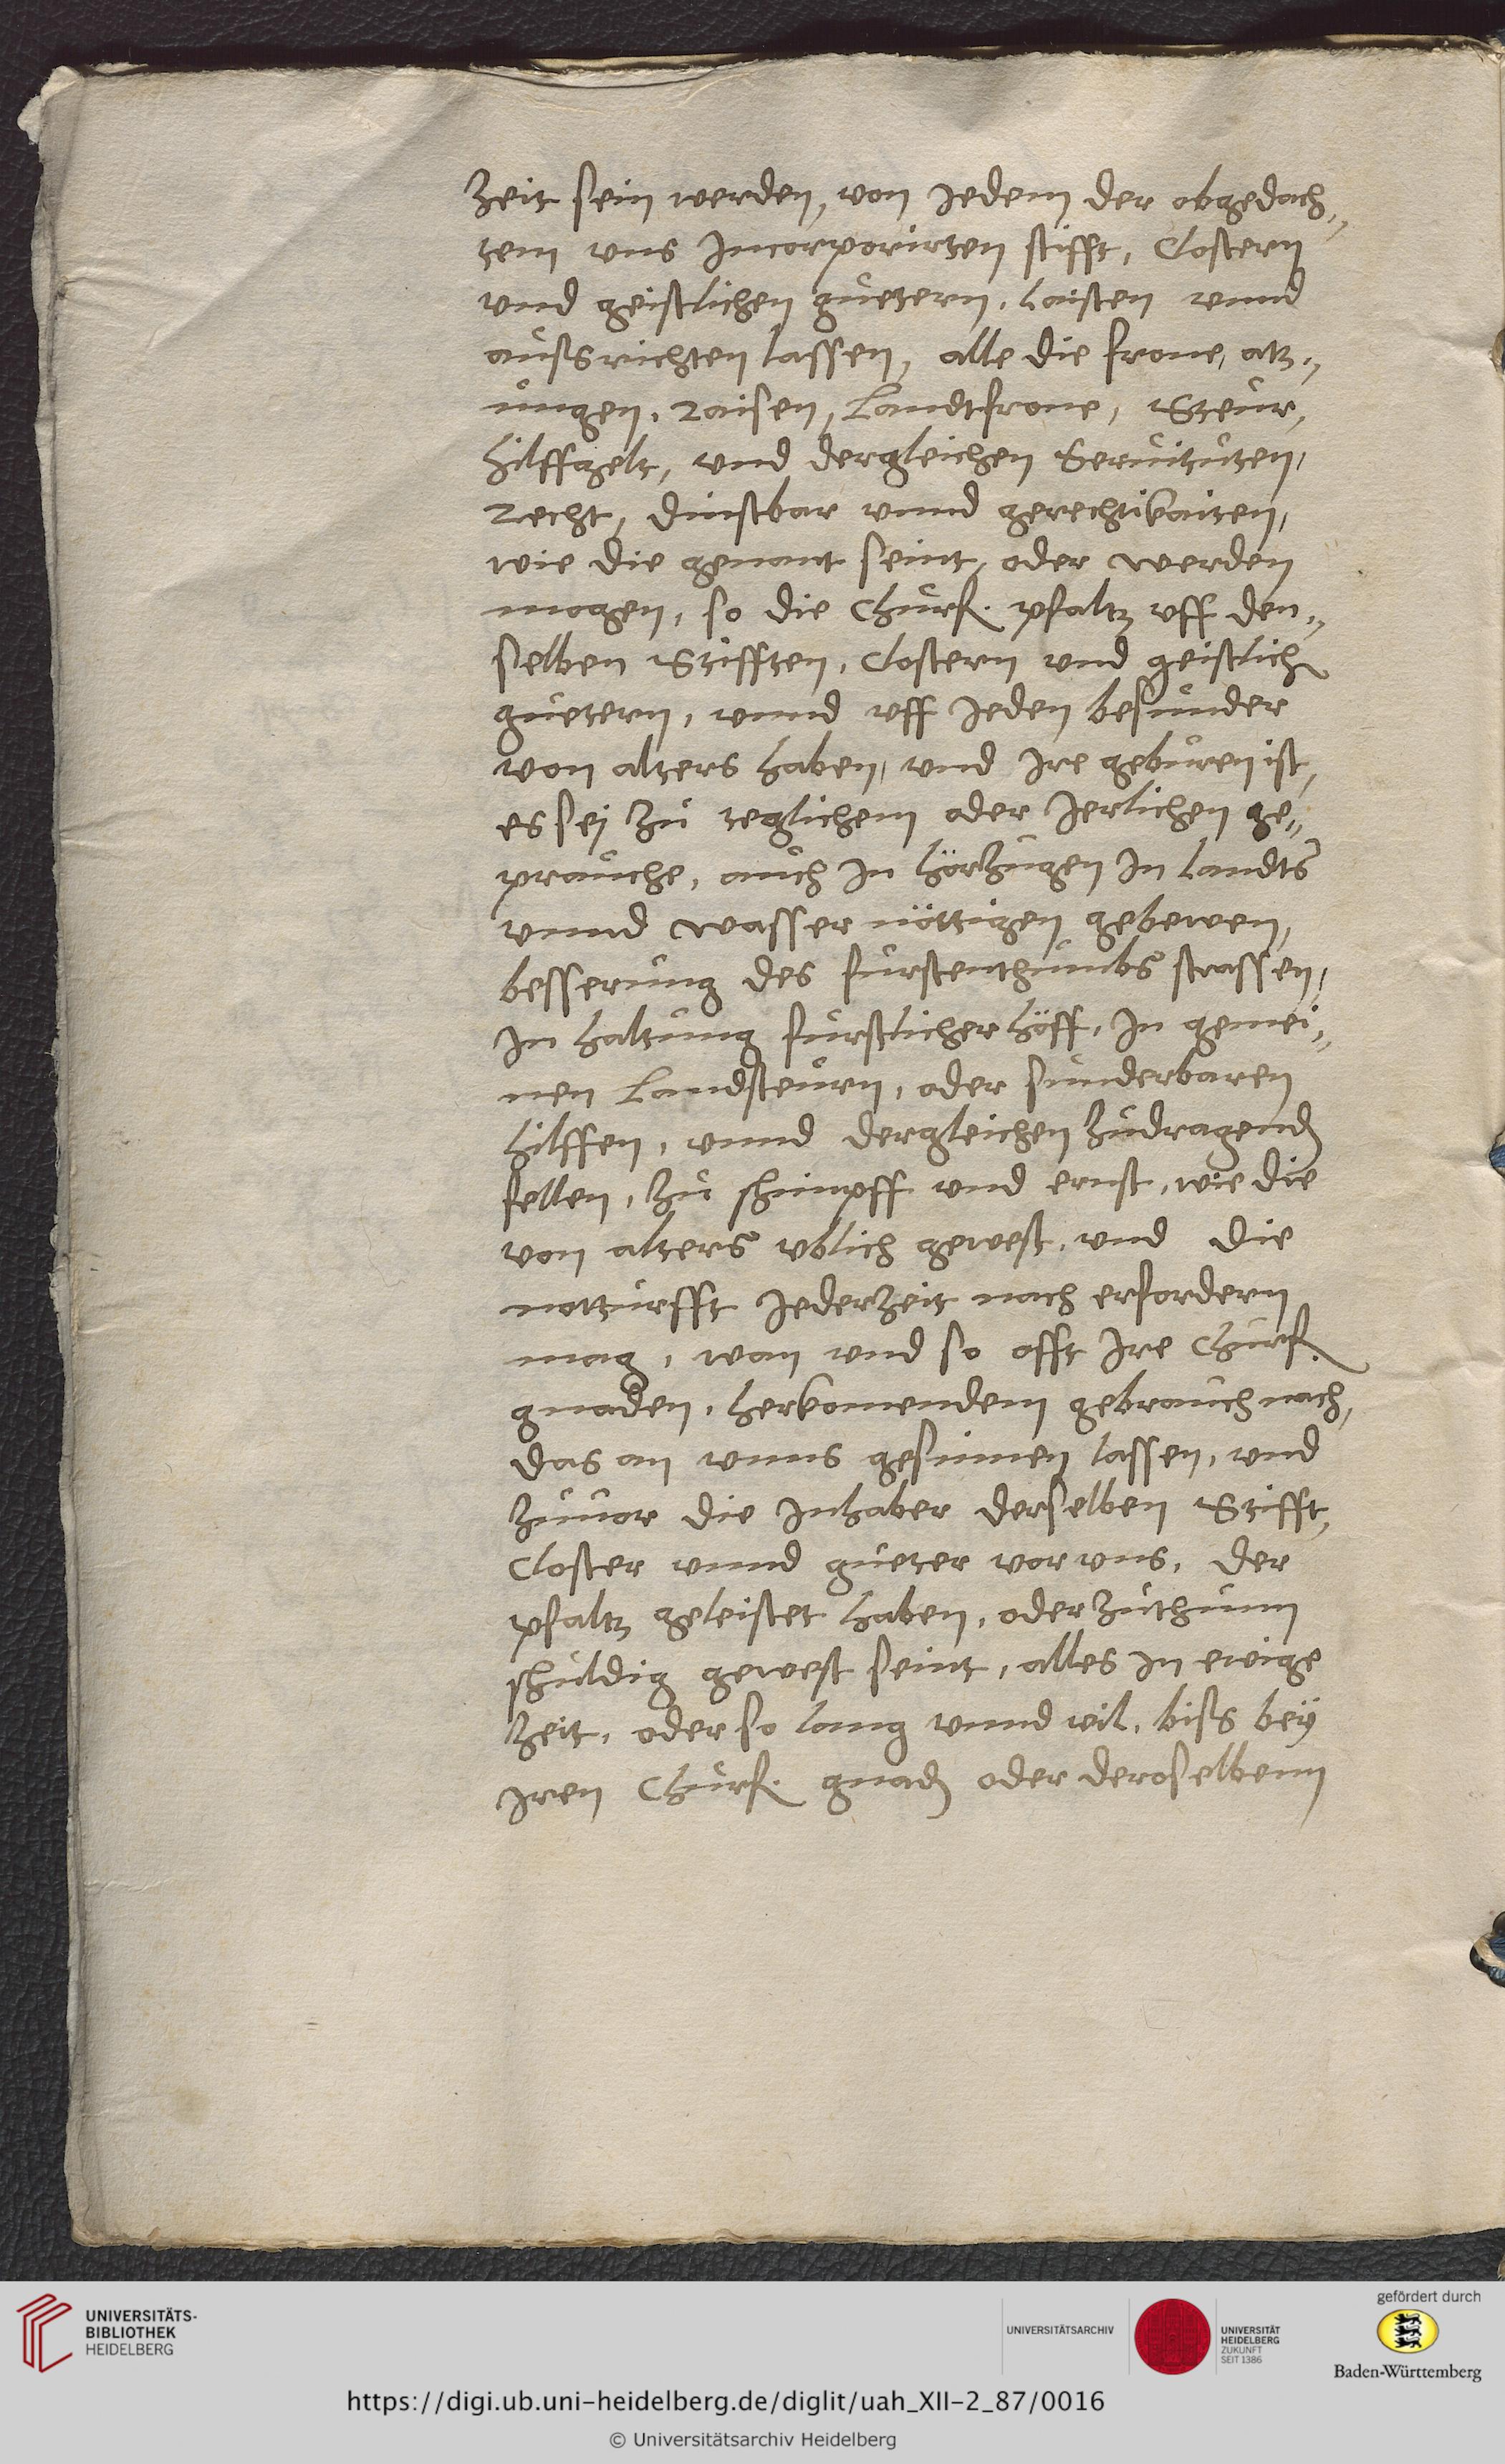 Zeit sein werden, von Jedem der obgedach„
tem vns Incorporirten stifft, Clostern
vnd geistlichen guetern, laisten vnnd
außrichten lassen, alle die frone, atz„
ungen, Raisen, Landtfrone, Steur,
hilffgelt, vnd dergleichen Seruituten,
Recht, dinstbar vnnd gerechtikaiten,
wie die genant seint, oder werden
mogen, so die Churf. pfaltz vff den„
selben Stifften, Clostern vnd geistlich
guetern, vnnd vff Jeden besunder
von alters haben, vnd Ire geburen ist,
es sej zu teglichem oder Jerlichen ge„
prauche, auch In hörzugen In landts
vnnd wasser nöttigen gebewen,
besserung des furstenthumbs strassen,
In haltung furstlicher höff, In gemei„
nen Landsteurn, oder sunderbaren
hilffen, vnnd dergleichen zudragend
fellen, zu schimpff vnd ernst, wie die
von alters vblich gewest, vnd die
notturfft Jederzeit nach erfordern
mag, wan vnd so offt Ire Churf.
gnaden, herkomendem gebrauch nach,
das an vnns gesinnen lassen, vnd
zuuor die Inhaber derselben Stifft,
Closter vnnd gueter vor vns, der
pfaltz geleistet haben, oder zuthunn
schuldig gewest seint, alles In ewige
Zeit, oder so lang vnnd vil, biß bey
Iren Churf. gnad oder deroselbenn
UNIVERSITÄTS-
BIBLIOTHEK
HEIDELBERG
UNIVERSITÄTSARCHIV
UNIVERSITÄT
HEIDELBERG
ZUKUNFT
SEIT 1386
gefördert durch
Baden-Württemberg
https://digi.ub.uni-heidelberg.de/diglit/uah_XII-2_87/0016
© Universitätsarchiv Heidelberg